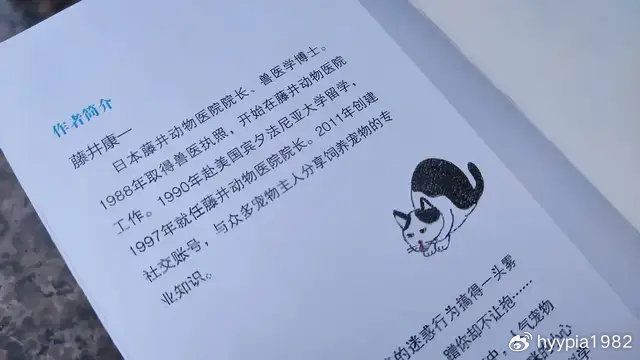 作者简介
藤井康一
日本藤井动物医院院长、兽医学博士。
1988年取得兽医执照，开始在藤井动物医院
工作。1990年赴美国宾夕法尼亚大学留学，
1997年就任藤井动物医院院长。2011年创建
社交账号，与众多宠物主人分享饲养宠物的专
业知识。
的迷惑行为搞得一头雾
蹭你却不让抱……
人气宠物
心
学
hyypia1982